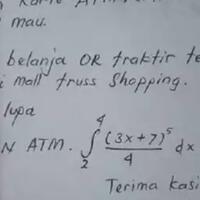 Karte ATM
mau.
belanja OR traktir te
mall truss shopping.
lupa
N ATM. ∫₂⁴ (3x+7)⁵/4 dx
Terima kasi